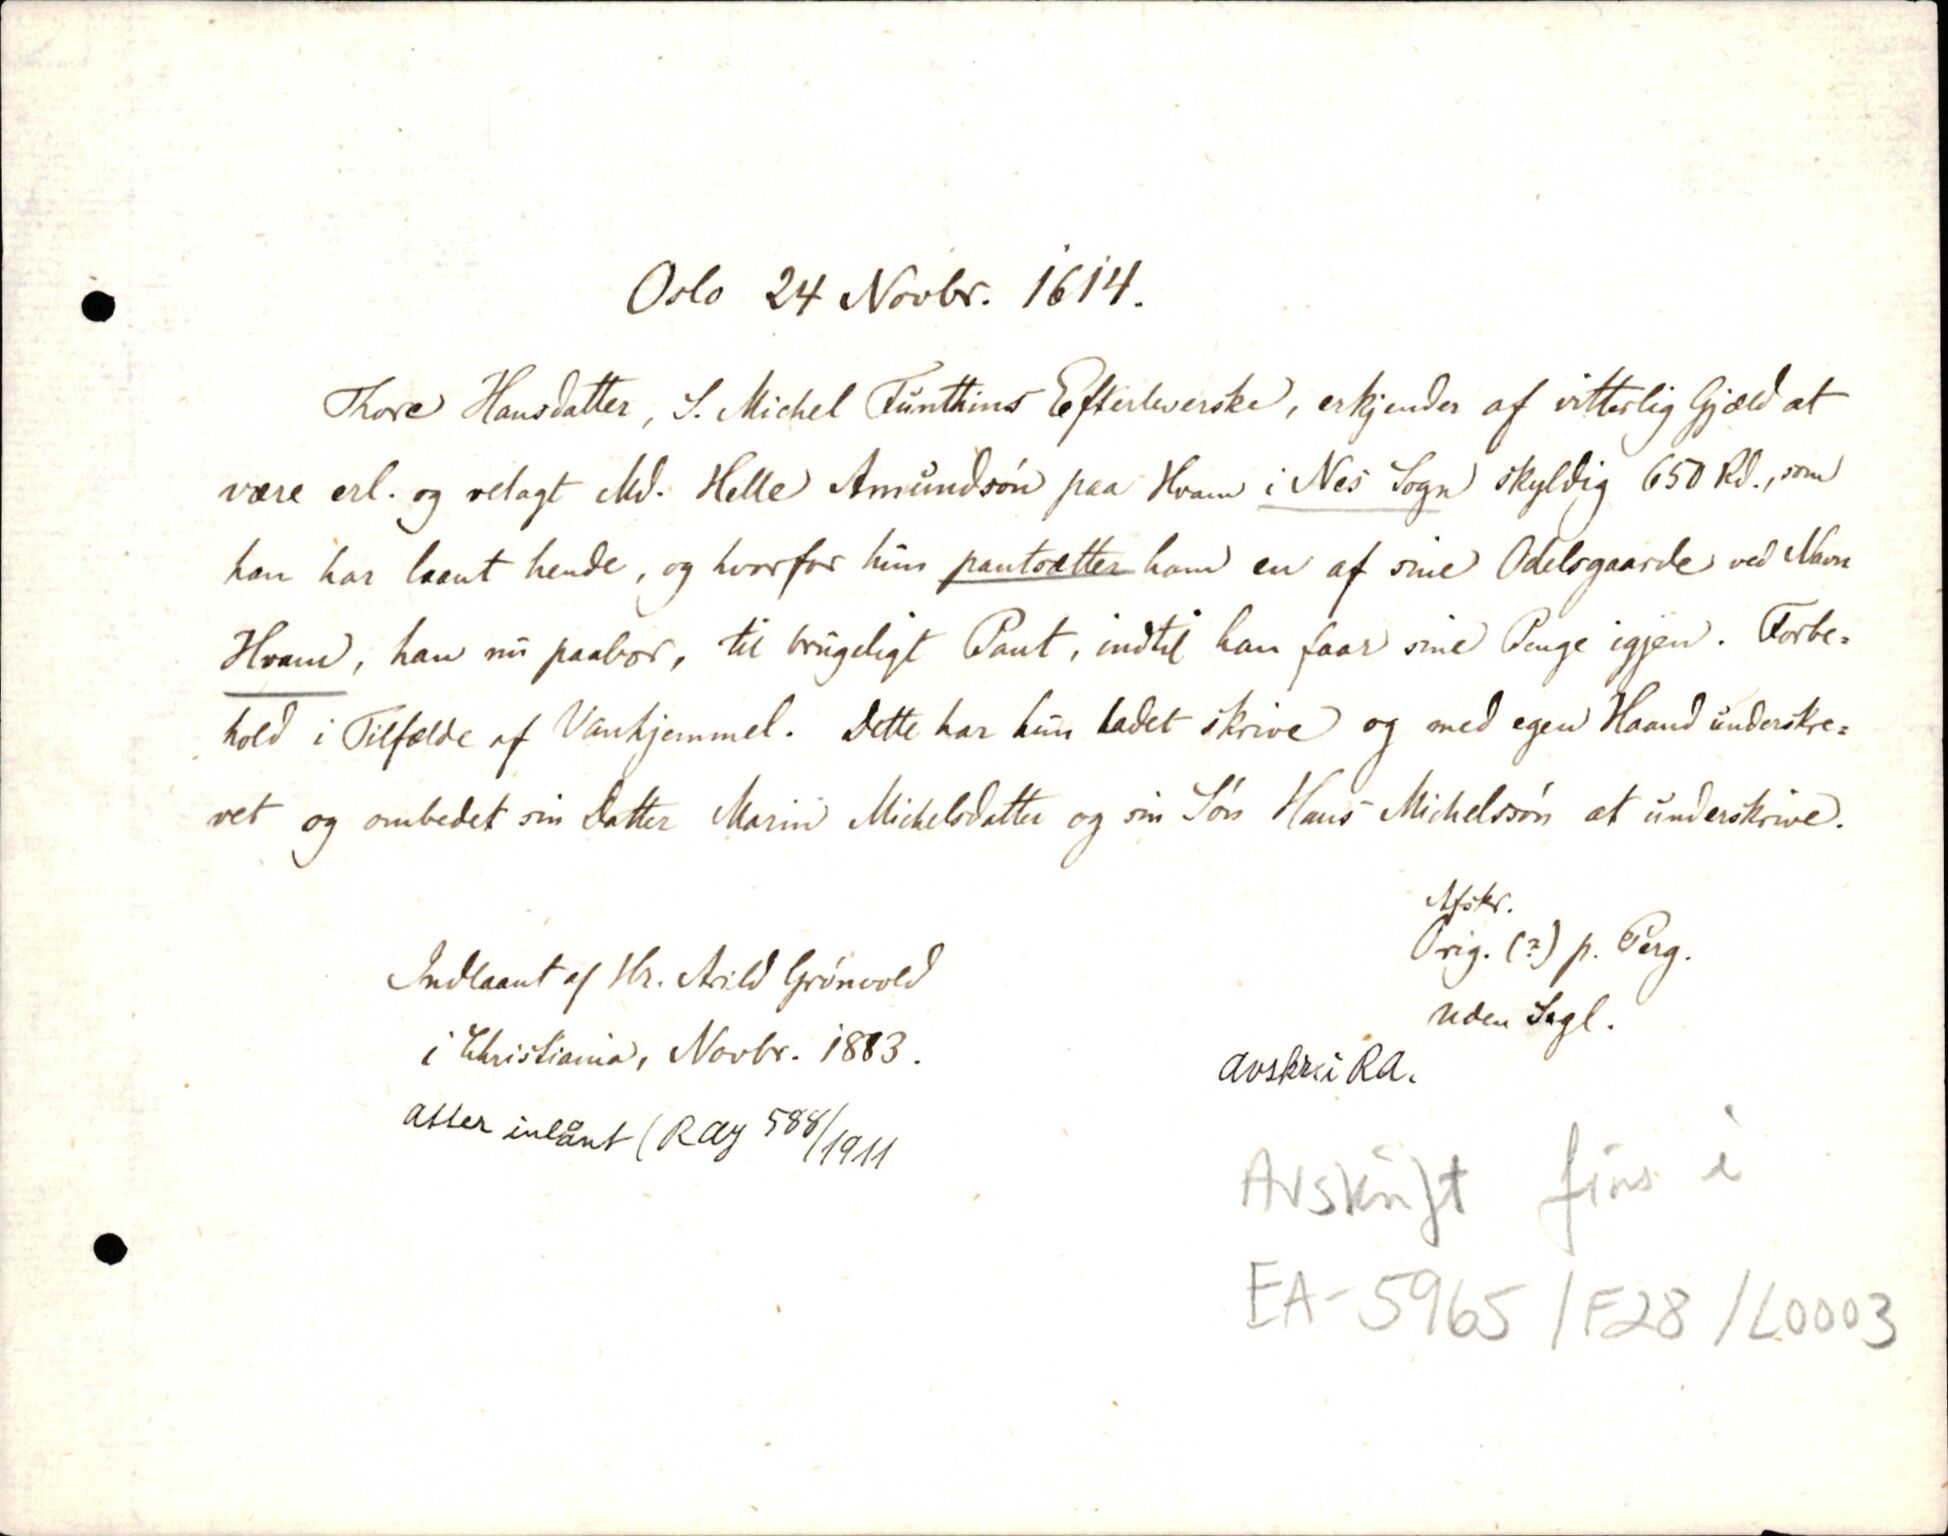 Oslo 24 Novbr. 1614.
Thore Hansdatter, S. Michel Funthins Efterleverske, erkjender af vitterlig Gjæld at
være erl. og velagt Md. Helle Amundsón paa Hvam i Nes Sogn skyldig 650 Rd., som
han har laant hende, og hvorfor hun pantsætter ham en af sine Odelsgaarde ved Navn
Hvam, han nu paabor, til brugeligt Pant, indtil han faar sine Penge igjen. Forbe=
hold i Tilfælde af Vanhjemmel. Dette har hun ladet skrive og med egen Haand underskre=
vet og ombedet sin Datter Marin Michelsdatter og sin Són Hans Michelssón at underskrive.
Afskr.
Orig. (?) p. Perg.
uden Segl.
Indlaant af Hr. Arild Grónvold
i Christiania, Novbr. 1883.
avskr. i RA.
atter inlånt (RA 588/1911
Avskrift fins i
EA-5965/F28/L0003